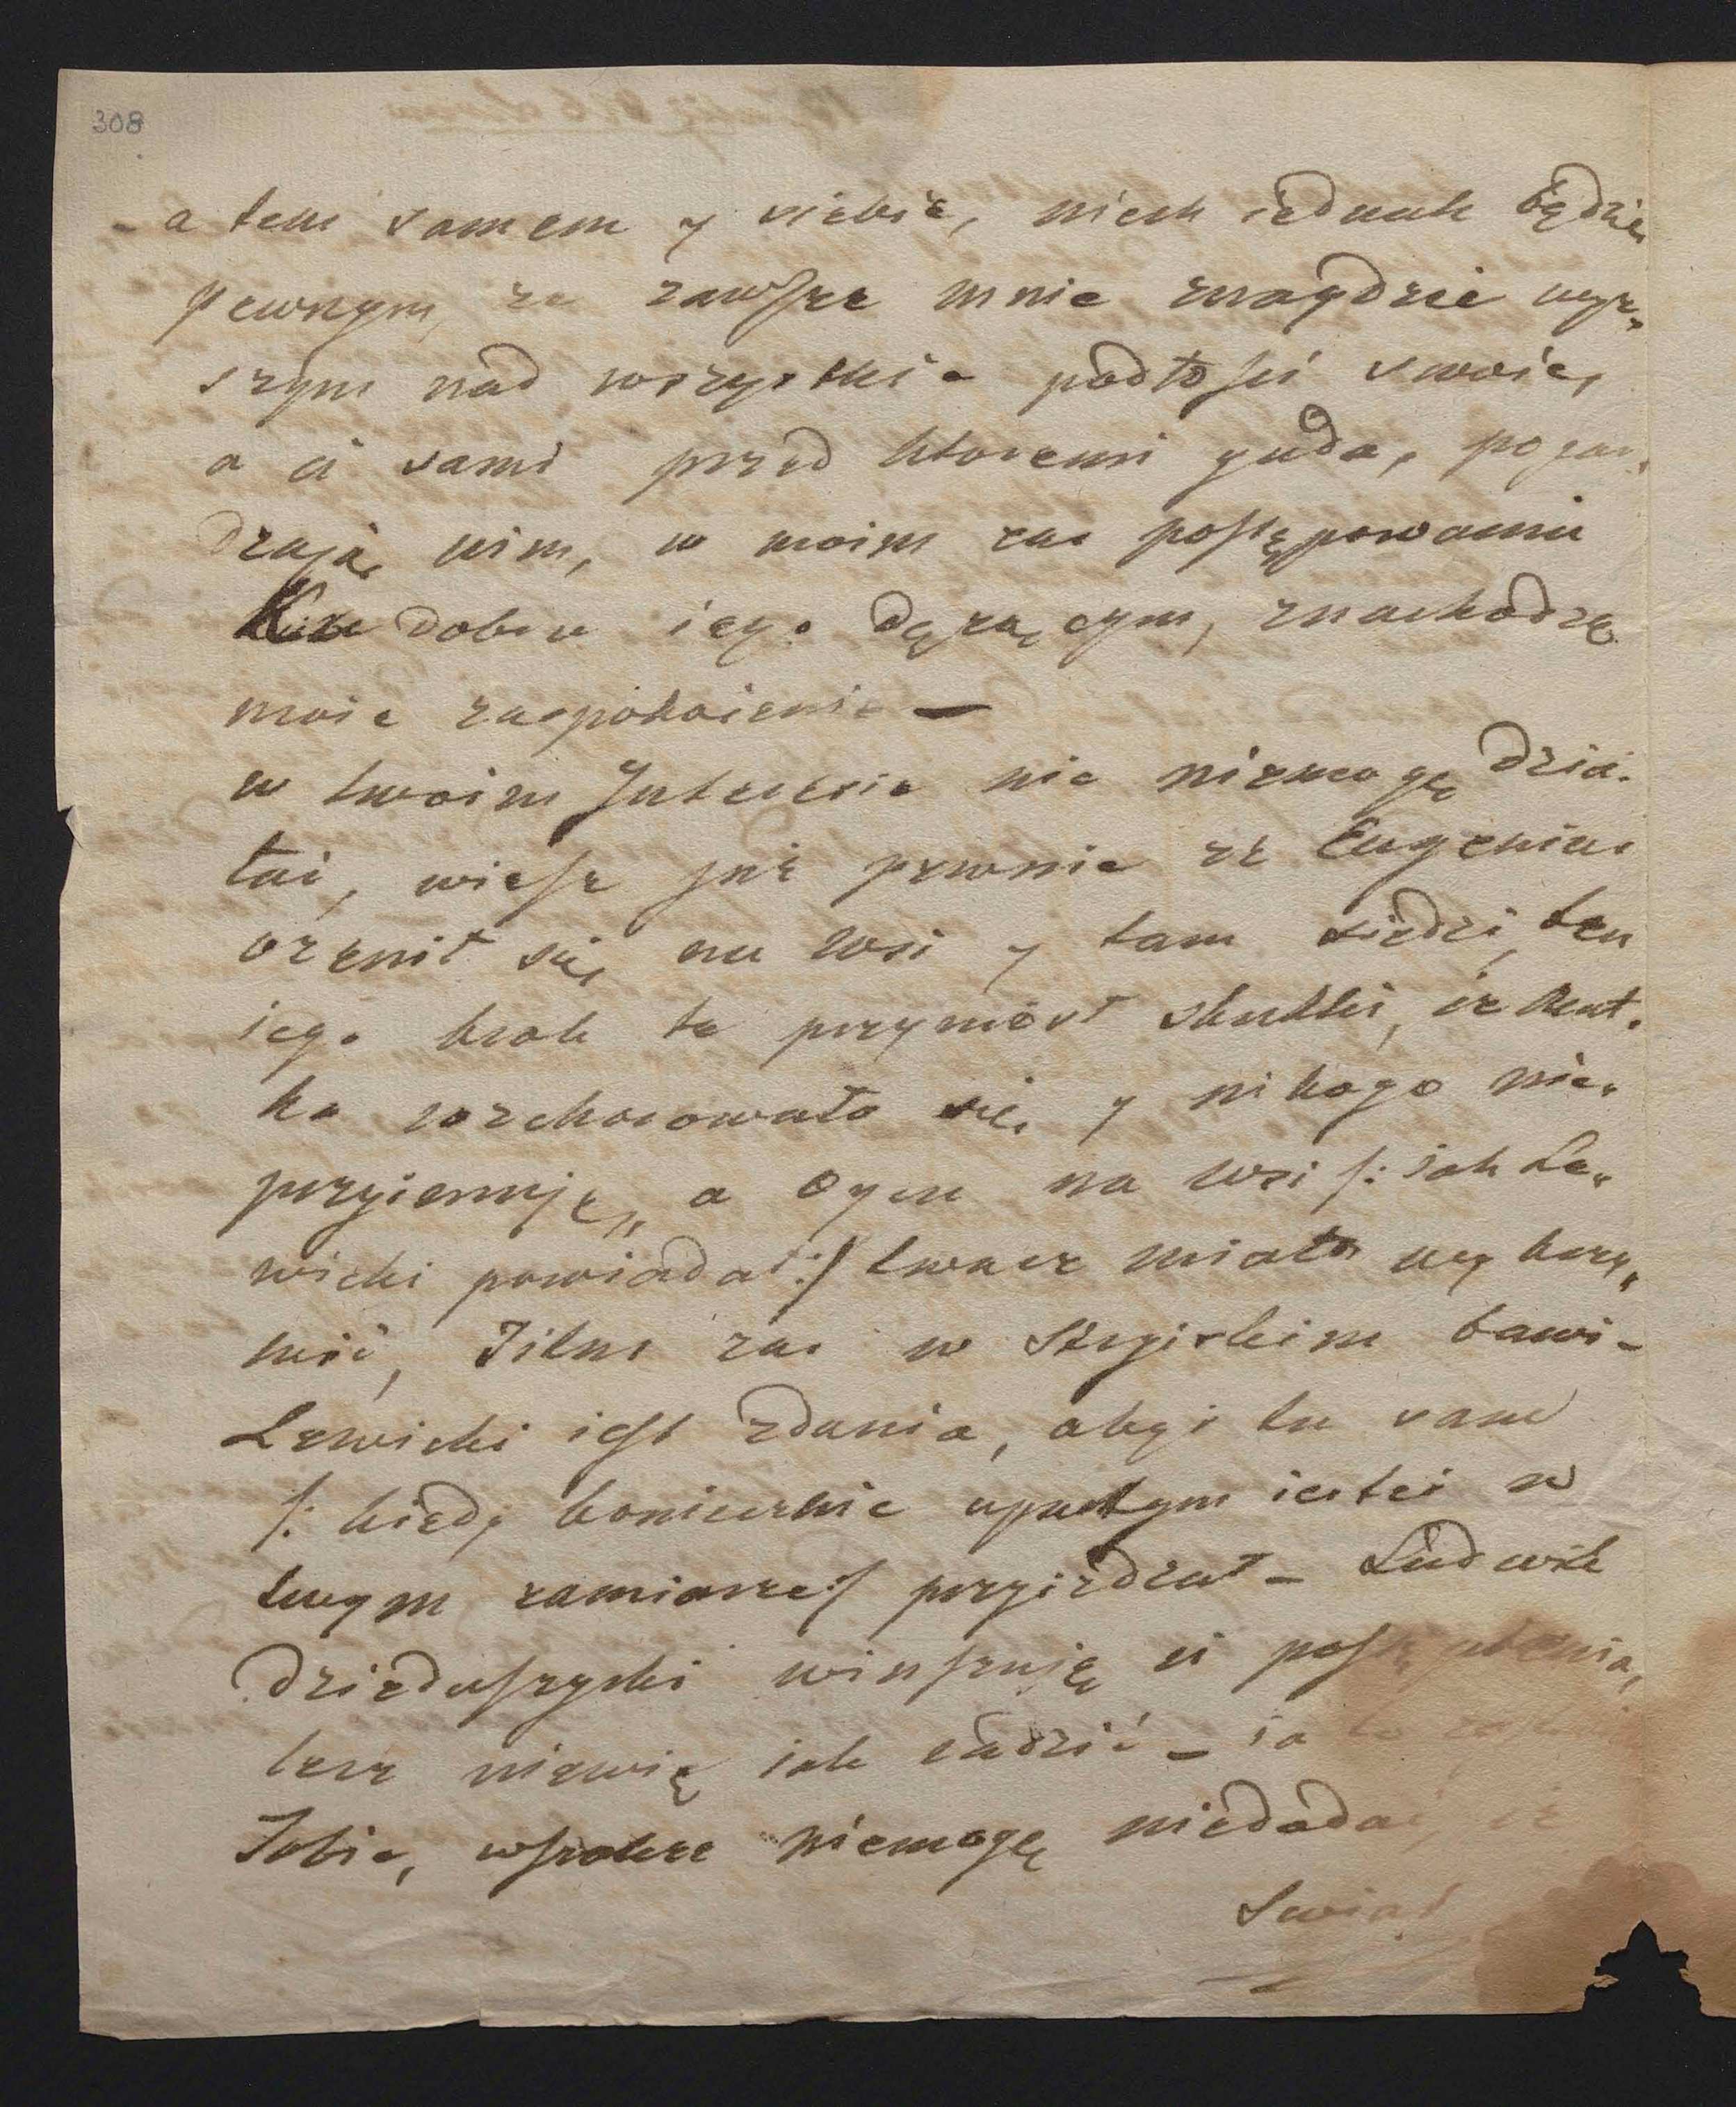 308
- a tem samem y siebie, niech iednak będzie
pewnym, ze zawsze mnie znaydzie wyz„
szym nad wszystkie podłosci swoie,
a ci sami przed ktoremi gada, pogar„
dzają nim, w moim zas postępowaniu
Ku dobru iego dązącym, znachodzę
moie zaspokoienie —
w twoim Interesie nic niemogę dzia„
łać, wiesz już pewnie że Eugeniusz
ozenił się na wsi y tam siedzi, ten
iego krok te przyniosł skutki, iz Mat„
ka rozchorowała się y nikogo nie„
przyiemuje„ a Oyca na wsi /: iak Le„
wicki powiadał :/ twarz miało wykrzy„
wić, zas w Stryiskim bawi -
Lewicki iest zdania, abyś tu sam
/: kiedy koniecznie upartym iesteś w
twym zamiarze :/ przyiedział - Ludwik
Dzieduszycki winszuję ci
lecz niewię iak radzić - ia
Tobie, wszakze niemogę niedodać iz
Swiat